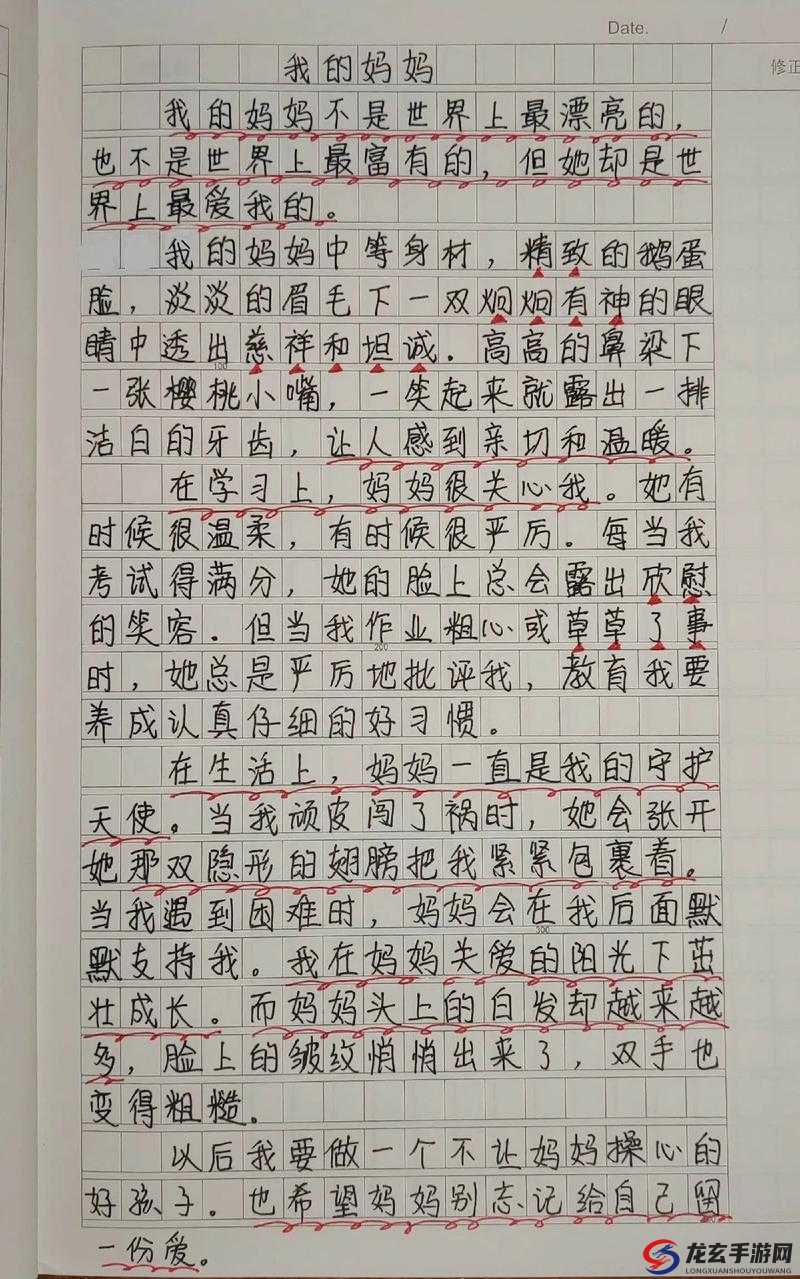 Date. /
修正
我的妈妈
我的妈妈不是世界上最漂亮的,
也不是世界上最富有的,但她却是世
界上最爱我的。
我的妈妈中等身材,精致的鹅蛋
脸,淡淡的眉毛下一双炯炯有神的眼
睛中透出慈祥和坦诚.高高的鼻梁下
100
一张樱桃小嘴,一笑起来就露出一排
洁白的牙齿,让人感到亲切和温暖。
在学习上,妈妈很关心我。她有
时候很温柔,有时候很严厉.每当我
考试得满分,她的脸上总会露出欣慰
的笑容.但当我作业粗心或草草了事
200
时,她总是严厉地批评我,教育我要
养成认真仔细的好习惯。
在生活上,妈妈一直是我的守护
天使。当我顽皮闯了祸时,她会张开
她那双隐形的翅膀把我紧紧包裹着。
当我遇到困难时,妈妈会在我后面默
300
默支持我。我在妈妈关爱的阳光下茁
壮成长。而妈妈头上的白发却越来越
多,脸上的皱纹悄悄出来了,双手也
变得粗糙。
以后我要做一个不让妈妈操心的
好孩子.也希望妈妈别忘记给自己留
一份爱。
龙玄手游网
LONGXUANSHOUYOUWANG